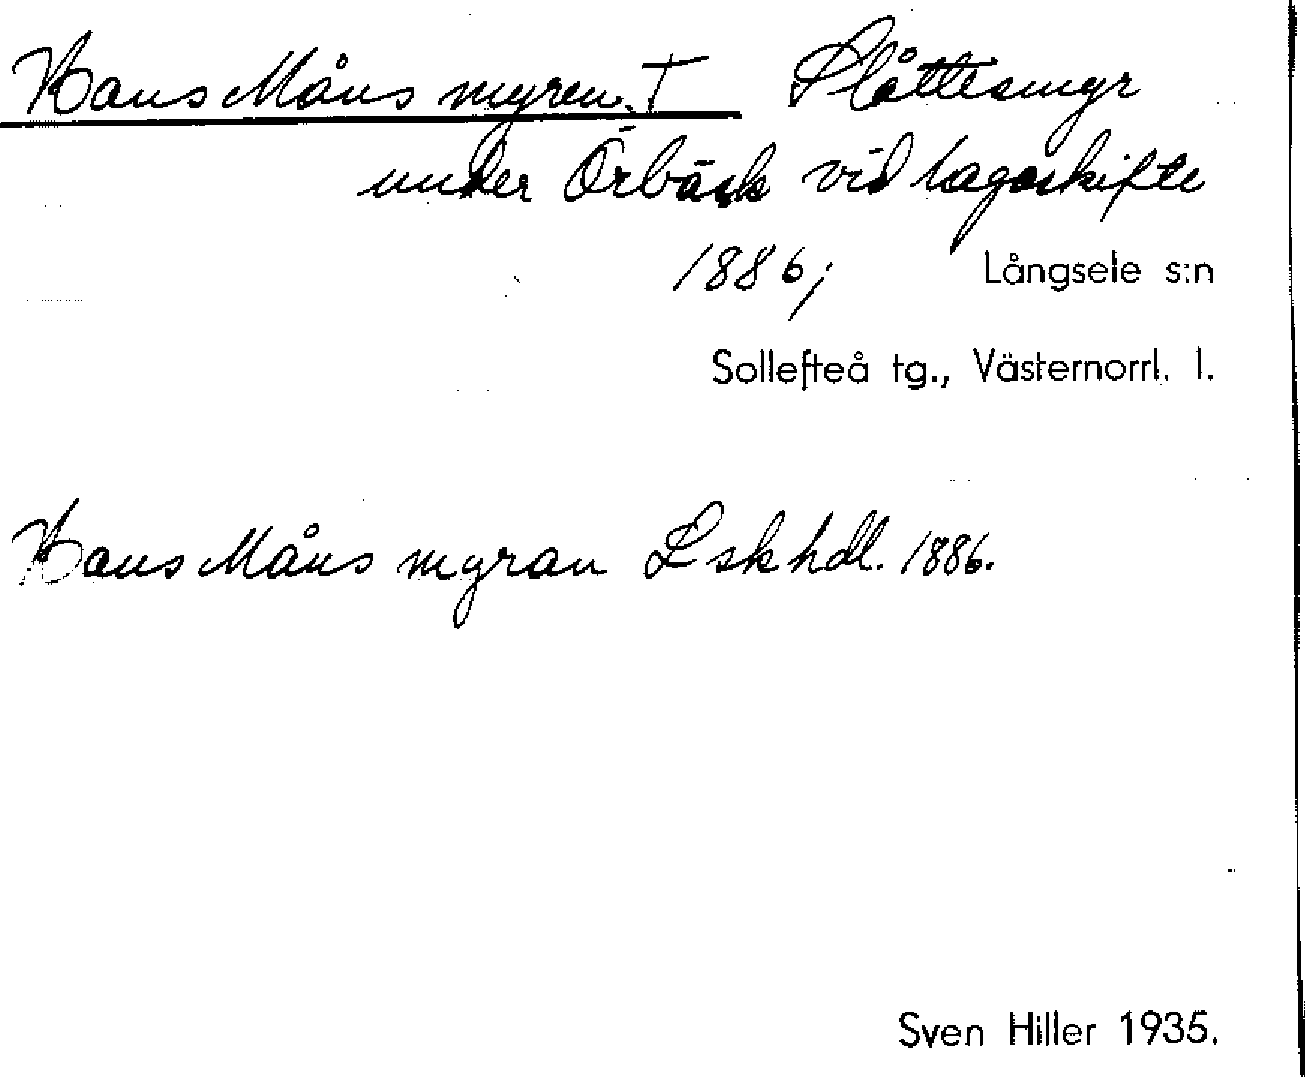 Hans Måns myren. † Slåttesmyr
under Örbäck vid lagaskifte
1886; Långsele s:n
Sollefteå tg., Västernorrl. l.
Hans Måns myran Lskhdl. 1886.
Sven Hiller 1935.